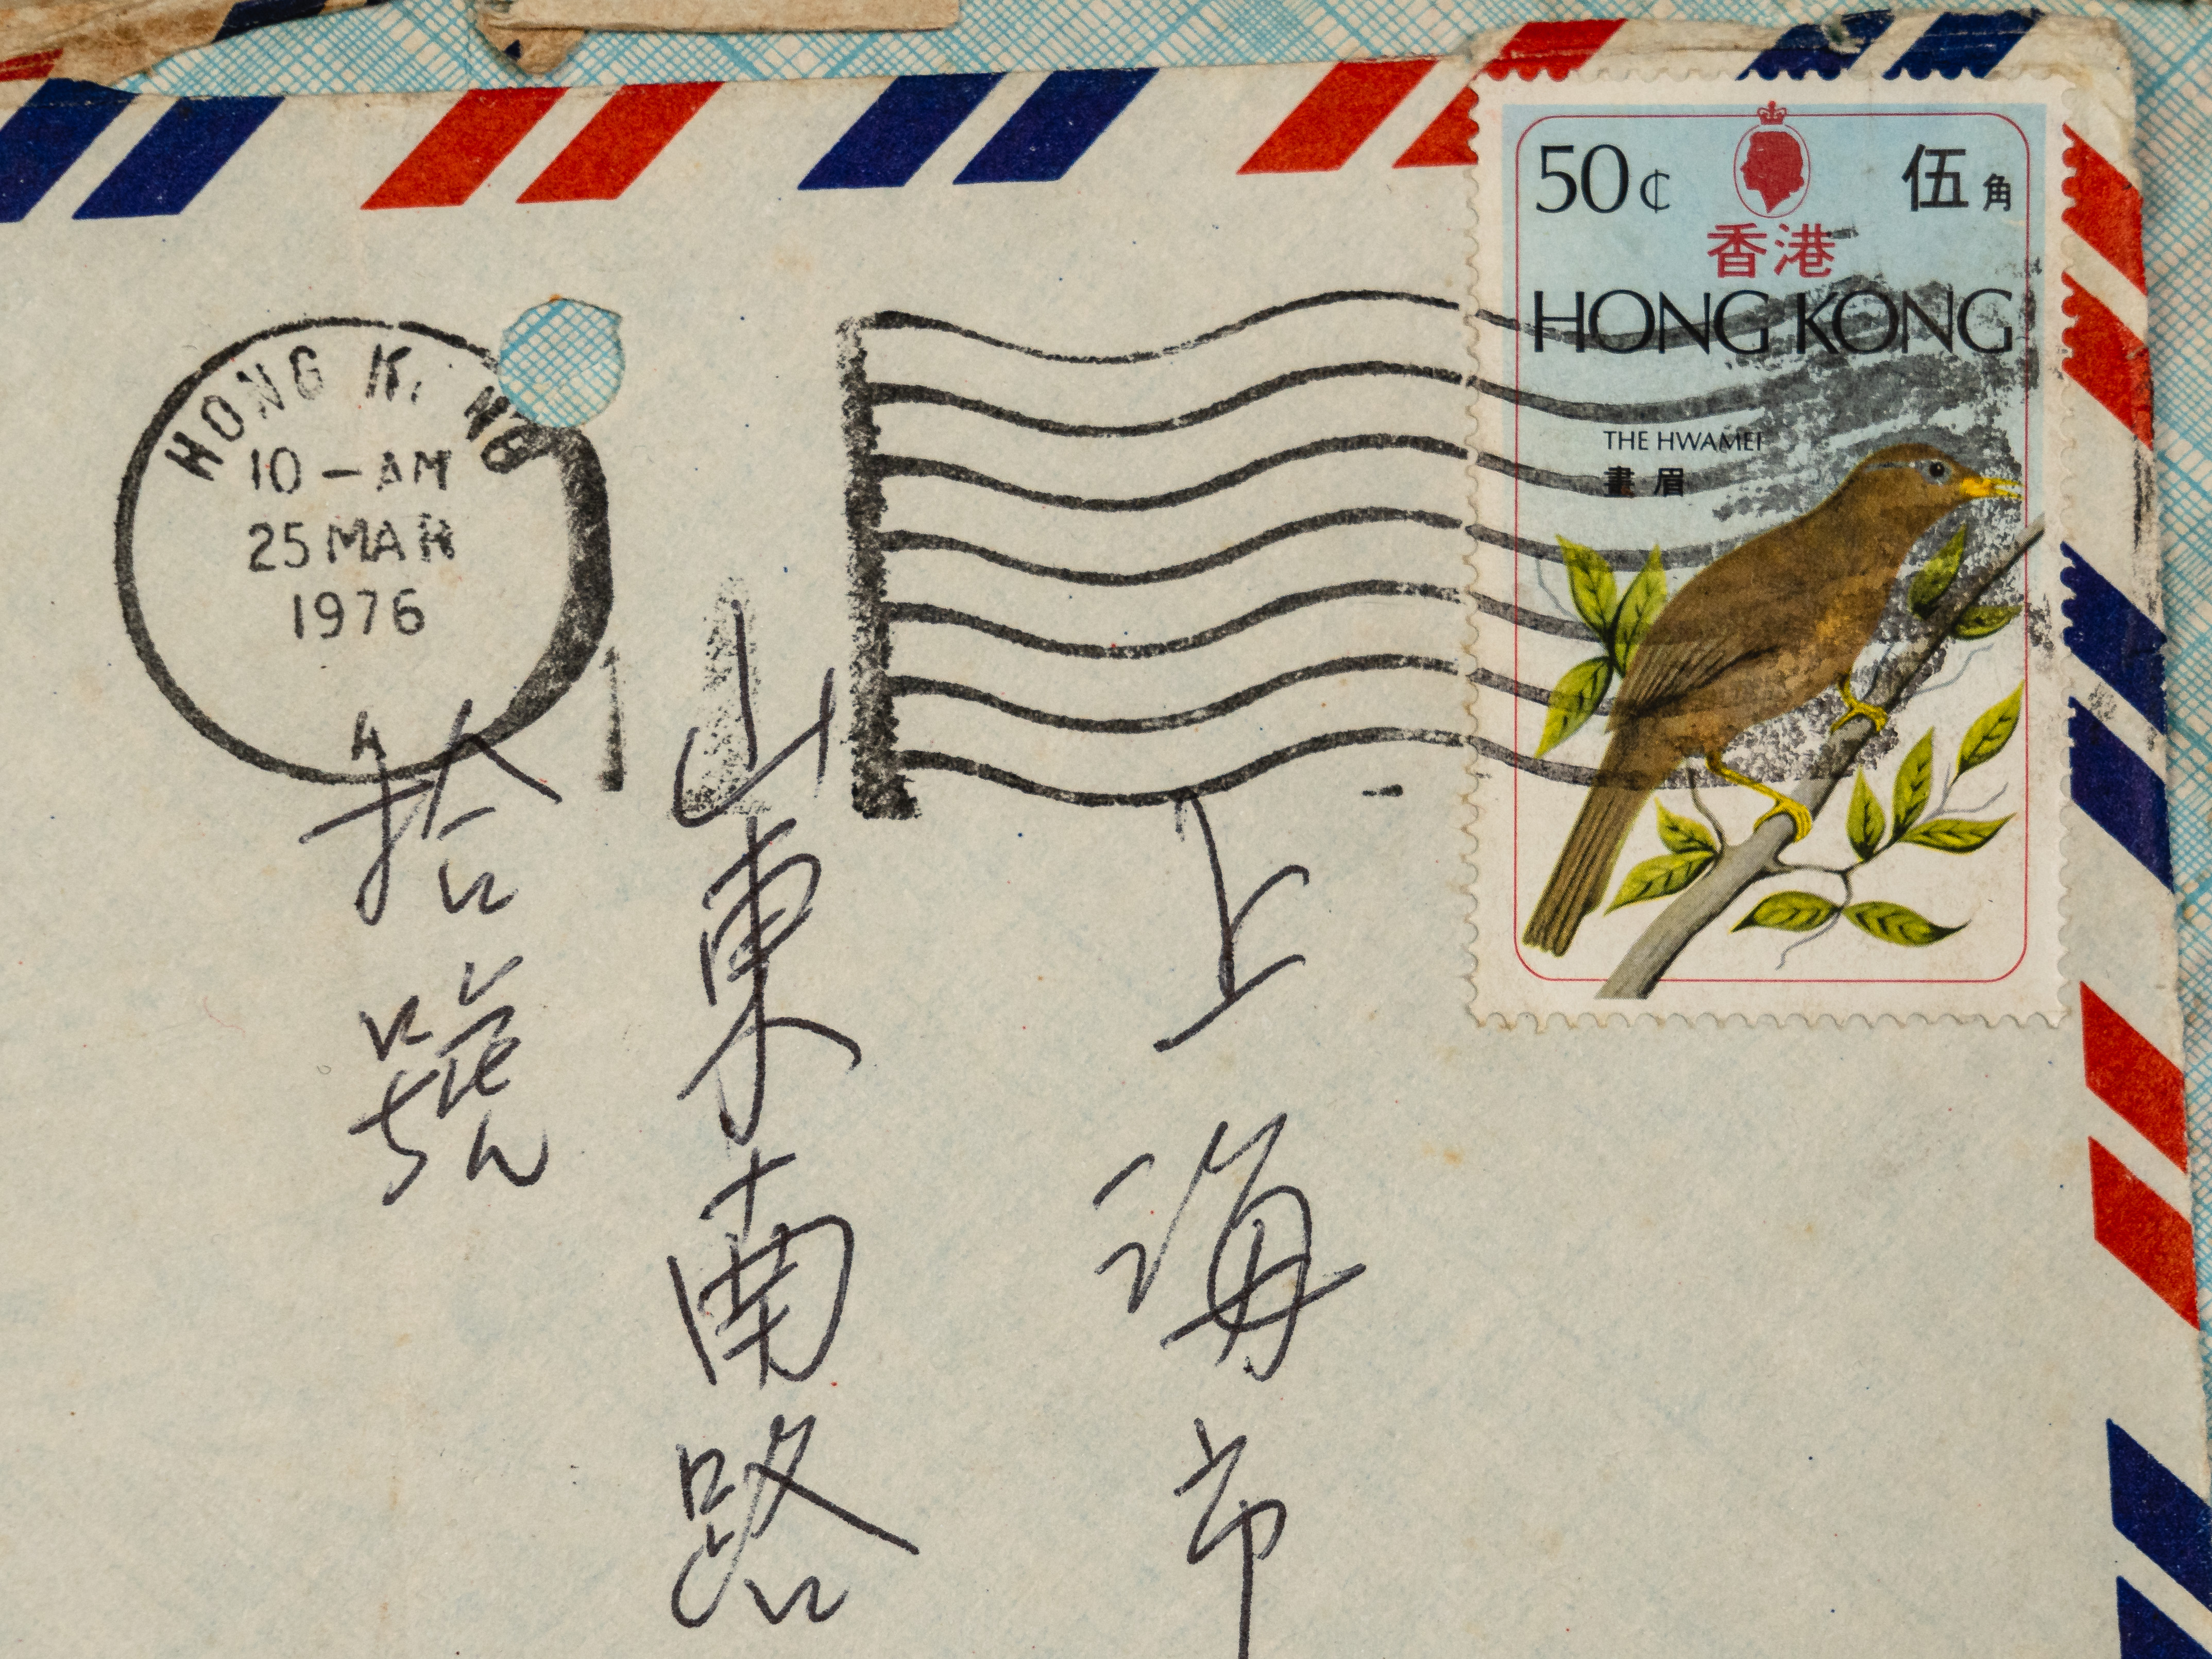 50¢ 伍角
香港
HONG KONG
THE HWAMEI
畫眉
HONG KONG
10-AM
25 MAR
1976
上海市
山東南路
拾號